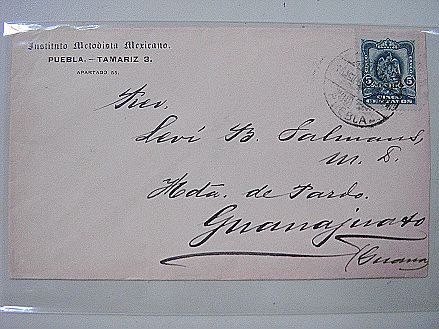 Instituto Metodista Mexicano.
PUEBLA.—TAMARIZ 3.
APARTADO 55.
5 5
CINCO
CENTAVOS
PUEBLA
Rev.
Leví B. Salmans,
M. D.
Hda. de Pardo.
Guanajuato
(Guana